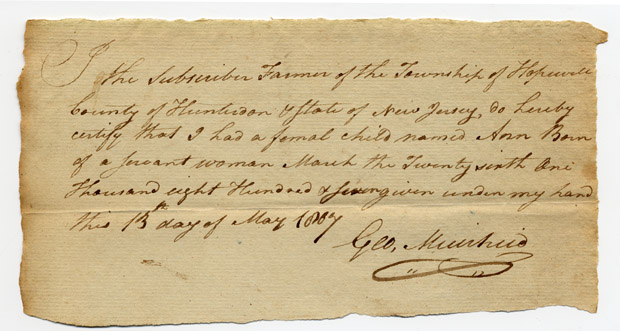 I the Subscriber Farmer of the Township of Hopewell
County of Hunterdon & State of New Jersey, do hereby
certify that I had a femal child named Ann Born
of a Servant woman March the Twenty sixth One
Thousand eight Hundred & Seven given under my hand
this 13th day of May 1807
Geo, Muirheid